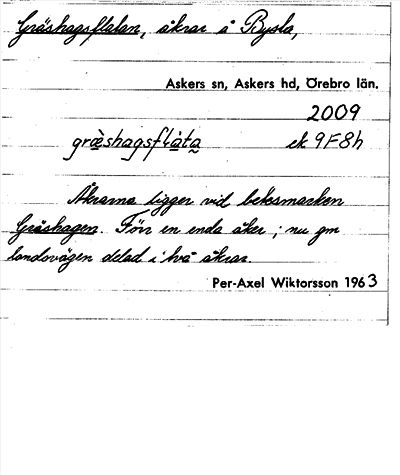 Gräshagsflatan, åkrar å Bysla,
Askers sn, Askers hd, Örebro län.
2009
græshagsflata ek 9F8h
Åkrarna ligger vid betesmarken
Gräshagen. Förr en enda åker; nu gm
landsvägen delad i två åkrar.
Per-Axel Wiktorsson 1963